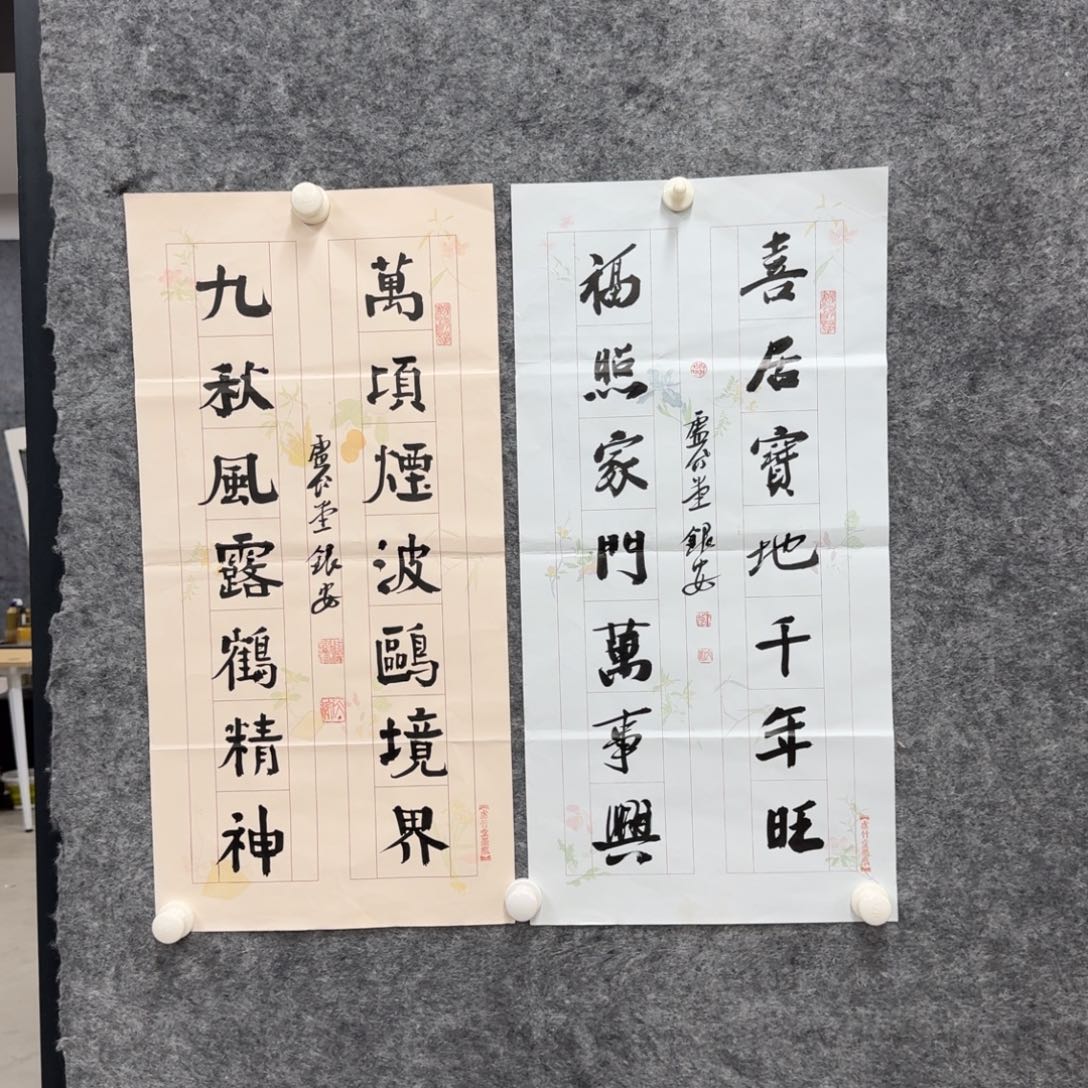 喜居寶地千年旺
福照家門萬事興
虛竹堂 銀安
萬頃煙波鷗境界
九秋風露鶴精神
虛竹堂 銀安